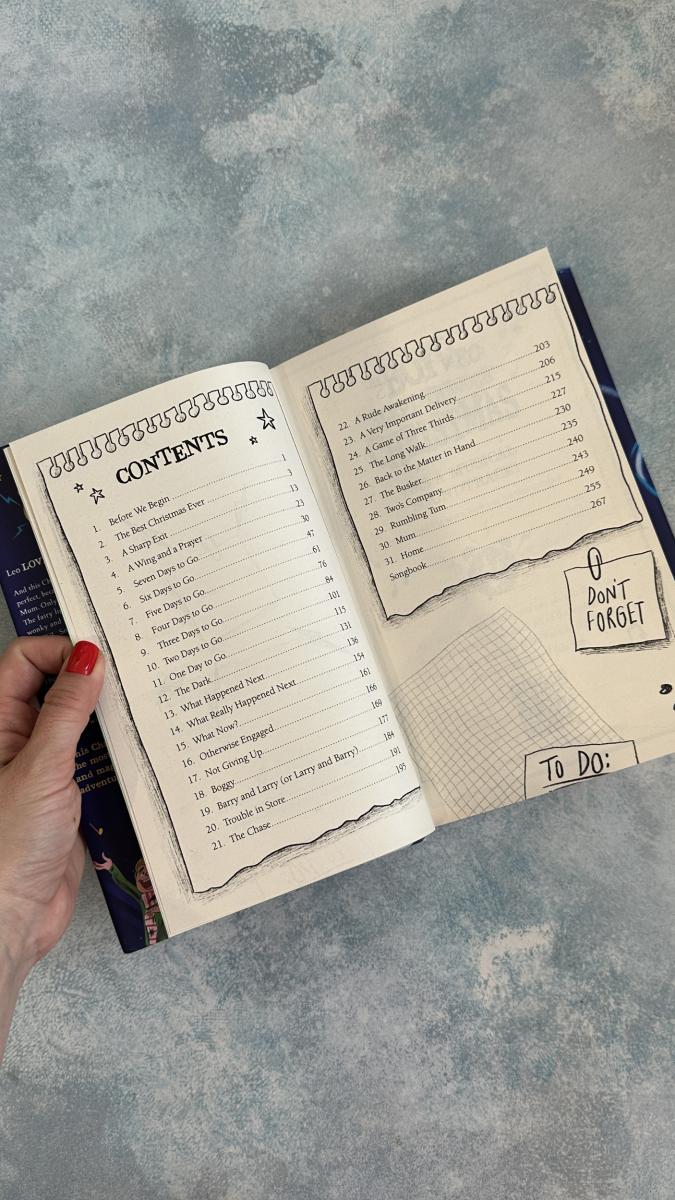 CONTENTS
1. Before We Begin 1
2. The Best Christmas Ever 3
3. A Sharp Exit 13
4. A Wing and a Prayer 23
5. Seven Days to Go 30
6. Six Days to Go 47
7. Five Days to Go 61
8. Four Days to Go 76
9. Three Days to Go 84
10. Two Days to Go 101
11. One Day to Go 115
12. The Dark 131
13. What Happened Next 136
14. What Really Happened Next 154
15. What Now? 161
16. Otherwise Engaged 166
17. Not Giving Up 169
18. Boggy 177
19. Barry and Larry (or Larry and Barry) 184
20. Trouble in Store 191
21. The Chase 195
22. A Rude Awakening 203
23. A Very Important Delivery 206
24. A Game of Three Thirds 215
25. The Long Walk 227
26. Back to the Matter in Hand 230
27. The Busker 235
28. Two's Company 240
29. Rumbling Tum 243
30. Mum 249
31. Home 255
Songbook 267
DON'T
FORGET
TO DO:
Leo LOV
And this Ch
perfect, bec
Mum. Only
The fairy li
wonky and
his Ch
the mos
and mag
adventu